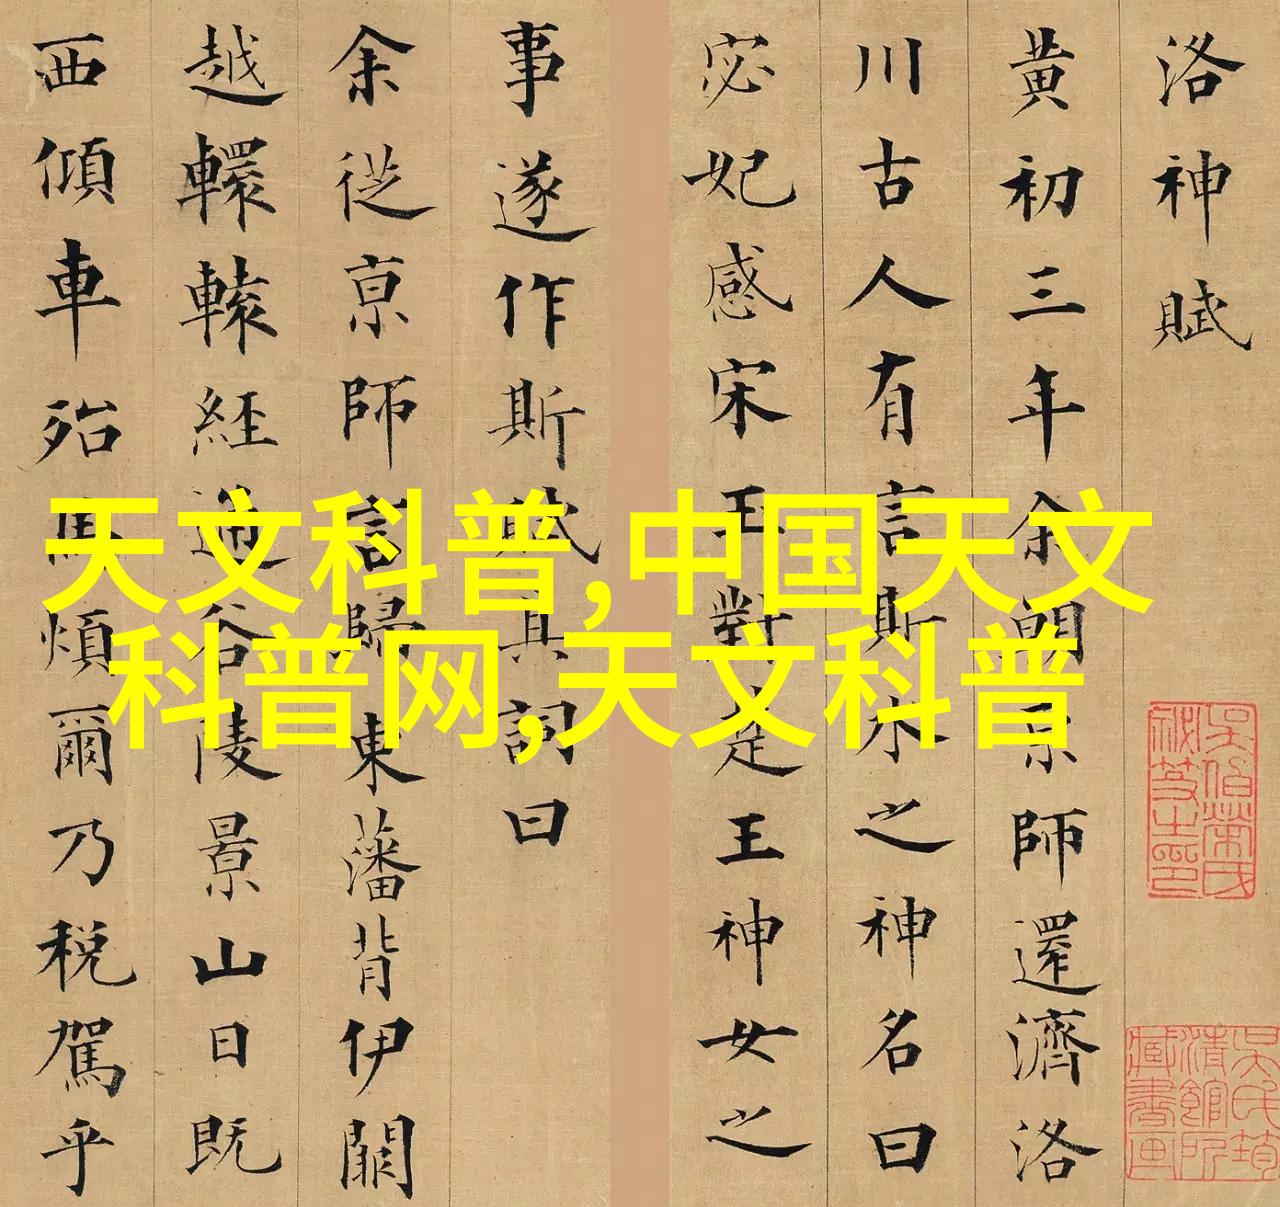 洛神賦
黃初三年余朝京師還濟洛
川古人有言斯水之神名曰
宓妃感宋玉對楚王神女之
事遂作斯賦其詞曰
余從京師言歸東藩背伊闕
越轘轅經通谷陵景山日既
西傾車殆馬煩爾乃稅駕乎
天文科普,中国天文
科普网,天文科普